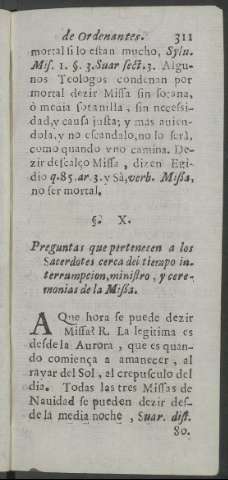 de Ordenantes. 311
mortal si lo estan mucho, Sylu.
Mis. 1. §. 3. Suar sect. 3. Algu-
nos Teologos condenan por
mortal dezir Missa sin sotana,
ò media sotanilla, sin necessi-
dad, y causa justa; y más auien-
dola, y no escandalo, no lo serà,
como quando vno camina. De-
zir descalço Missa, dizen Egi-
dio q. 85. ar. 3. y Sà, verb. Missa,
no ser mortal.
§. X.
Preguntas que pertenecen a los
Sacerdotes cerca del tiempo in-
terrumpcion, ministro, y cere-
monias de la Missa.
A Que hora se puede dezir
Missa? R. La legitima es
desde la Aurora, que es quan-
do comiença a amanecer, al
rayar del Sol, al crepusculo del
dia. Todas las tres Missas de
Nauidad se pueden dezir des-
de la media noche, Suar. dist.
80.